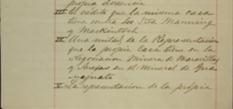 propia derencia
III El crédito que la misma casa
tiene contra los Sres Manning
y Mackintosh
IV Una mitad de la Representacion
que la propia casa tiene en la
Negociacion Minera de Marentes
y Anejas en el Mineral de Gua
najuato
V La representacion de la propia